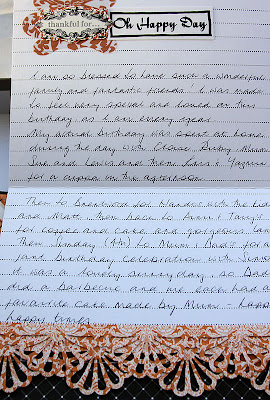 thankful for...
Oh Happy Day
I am so blessed to have such a wonderful
family and fantastic friends! I was made
to feel very special and loved on this
birthday as I am every year.
My actual birthday was spent at home
during the day with Chloe, Ruby, Mum,
Sue and Lewis and then
for a cuppa in the afternoon.
Then to for with the kids
and Matt then back to Anni & Tony's
for coffee and cake and gorgeous
Then Sunday (4th) to Mum & Dad's for a
joint birthday celebration with
it was a lovely sunny day so Dad
did a Barbecue and we each had a
favourite cake made by Mum - happy
happy times